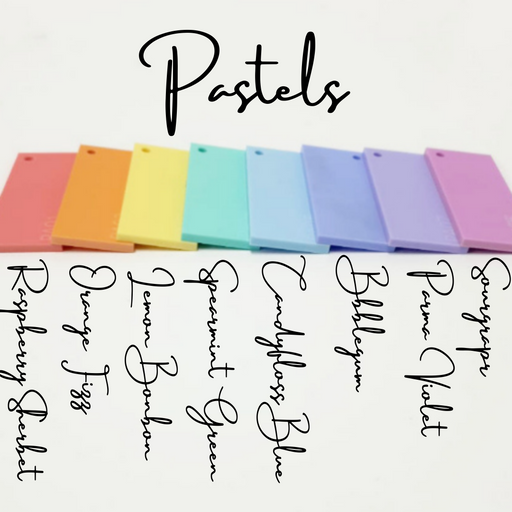 Pastels
Raspberry Sherbet
Orange Fizz
Lemon Bonbon
Spearmint Green
Candyfloss Blue
Bbblegum
Parma Violet
Sourgrapr